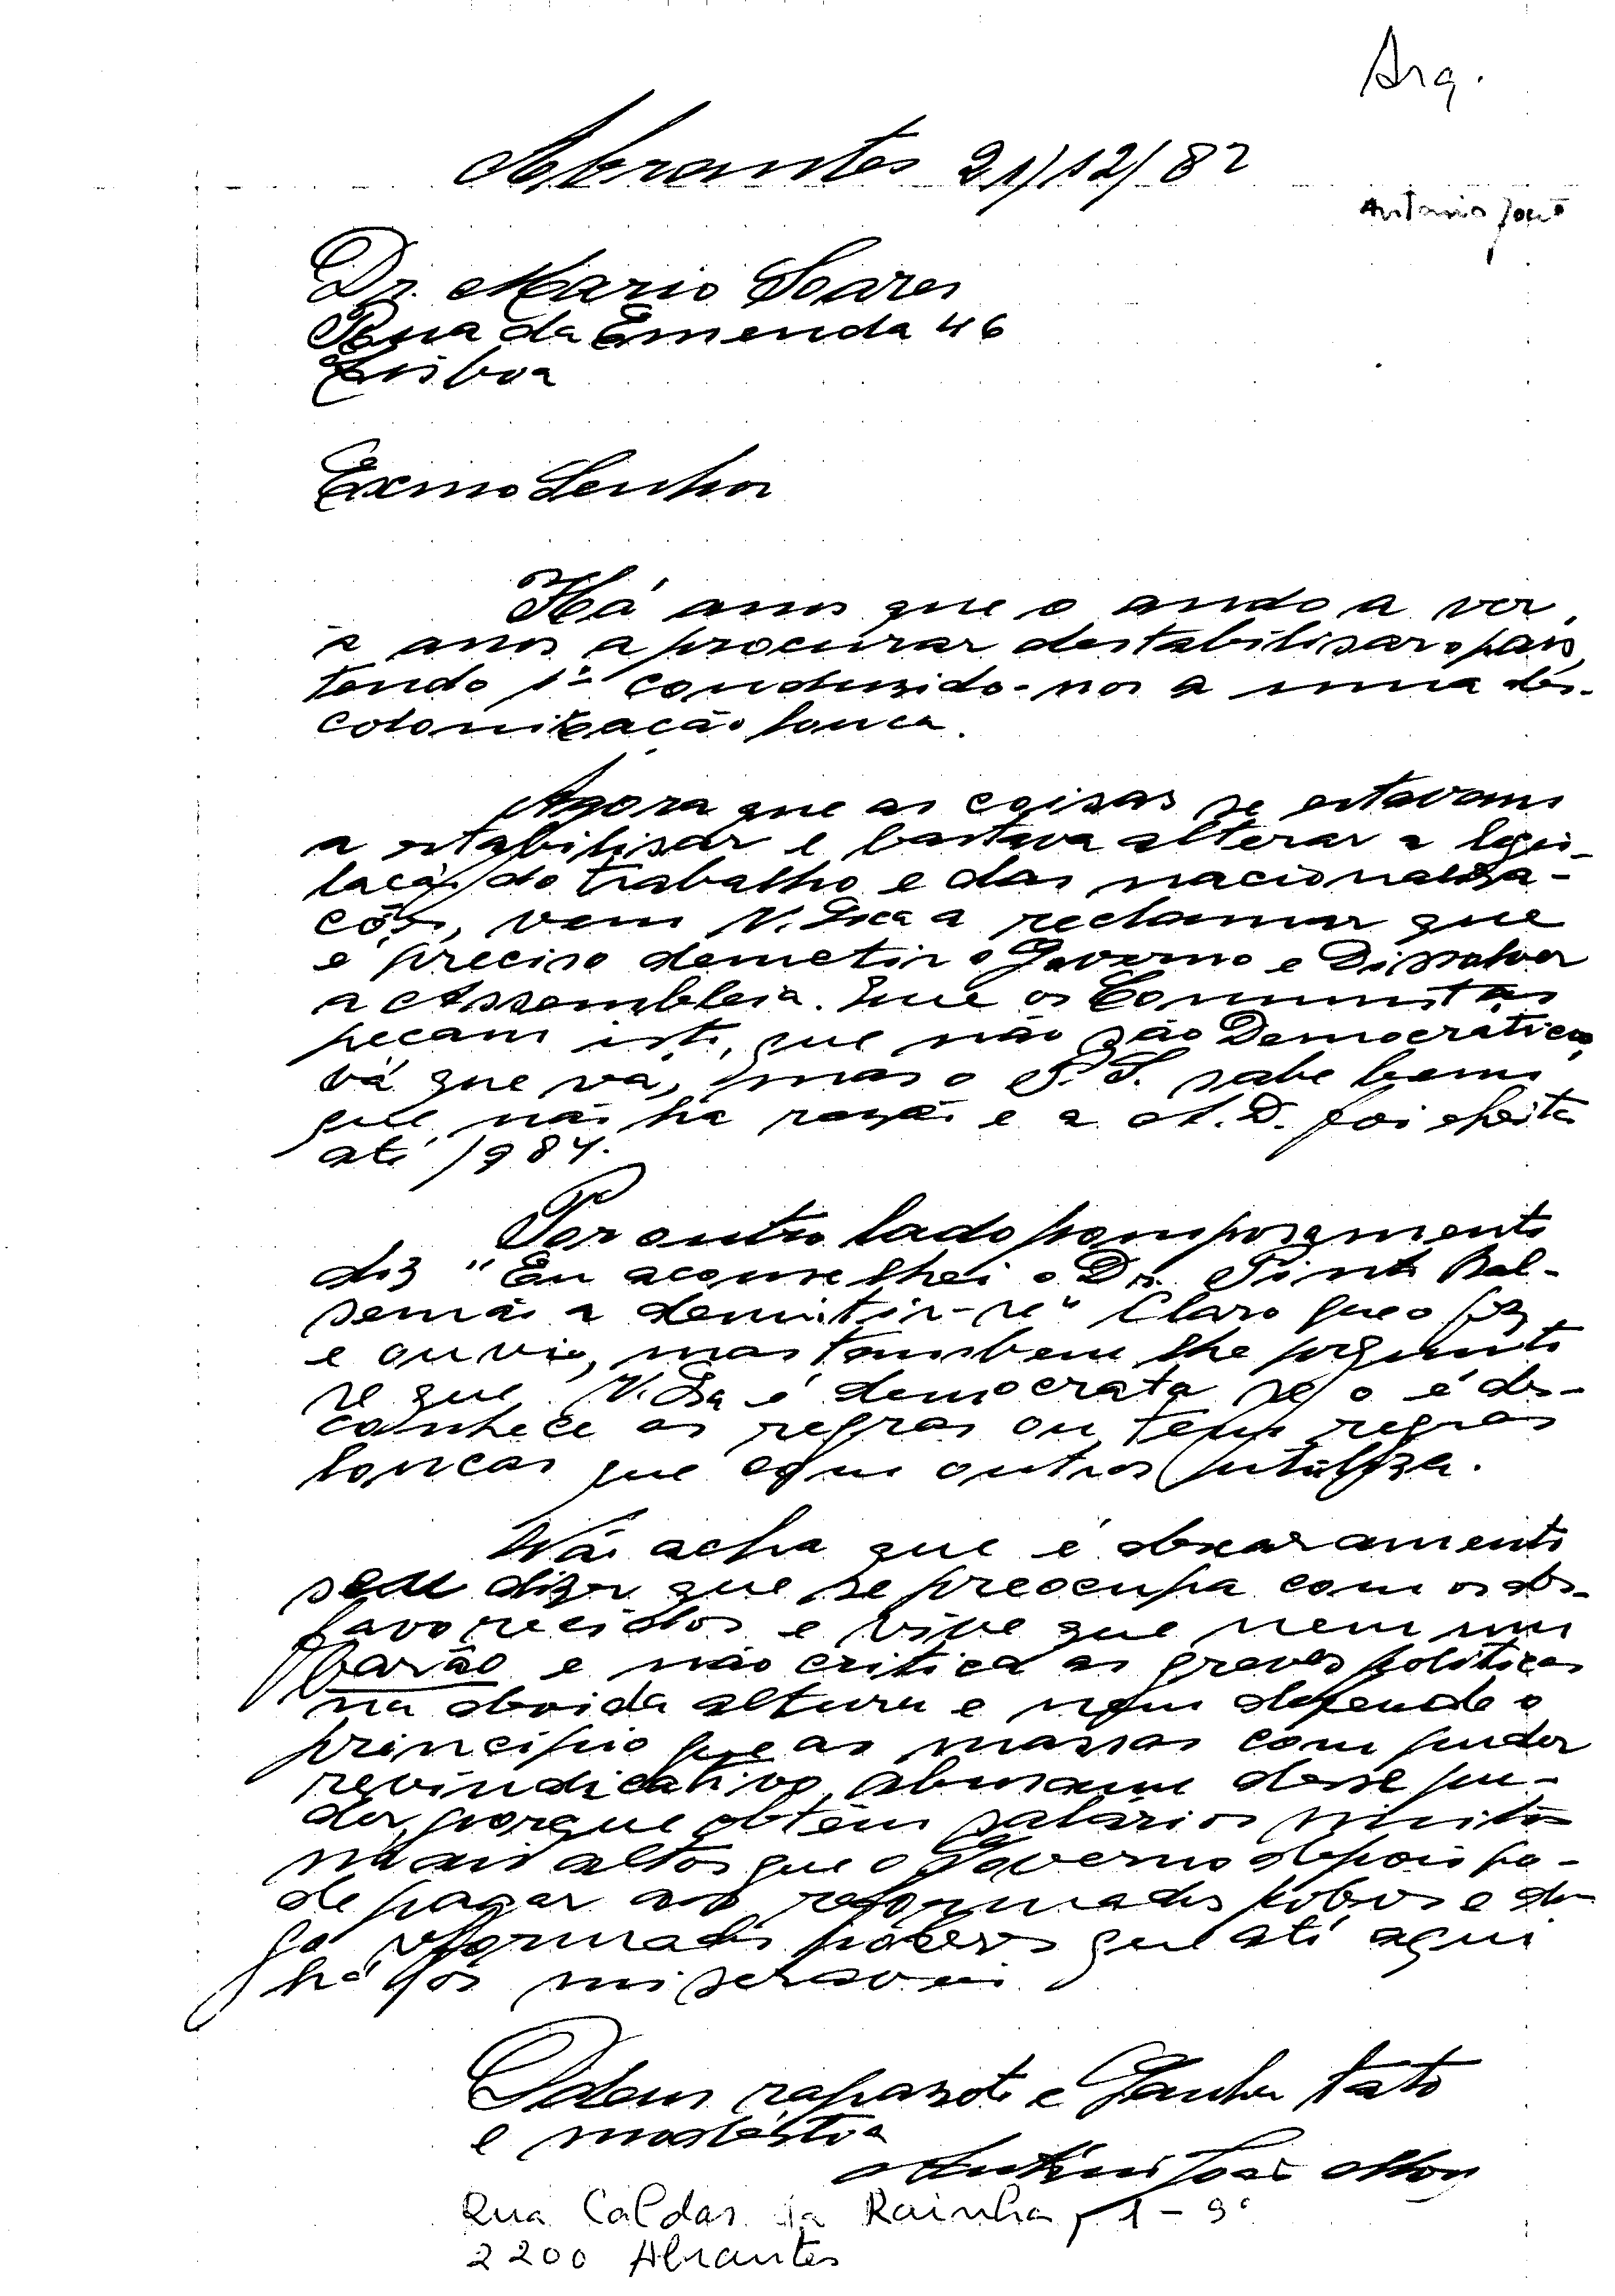 Arq.
Abrantes 21/12/82
António João
Dr. Mario Soares
Rua da Emenda 46
Lisboa
Exmo Senhor
Há anos que o ando a ver,
a anos a procurar destabilisar o pais,
tendo 1º conduzido-nos a uma des-
colonização louca.
Agora que as coisas se estavam
a estabilisar e bastava alterar a legis-
lação do trabalho e das nacionaliza-
ções, vem V. Exa a reclamar que
é preciso demetir o Governo e Dissolver
a Assembleia. Que os Comunistas
peçam isto, que não são Democráticos,
vá que vá, mas o P.S. sabe bem
que não há razão e a A.D. foi eleita
até 1984.
Por outro lado pomposamente
diz "Eu aconselhei o Dr. Pinto Bal-
semão a demitir-se" Claro que o fez
e ouvio, mas tambem lhe pergunto
se que V. Exa é democrata se o é des-
conhece as regras ou tem regras
loucas que com outros utiliza.
Não acha que é descaramento
seu dizer que se preocupa com os des-
favorecidos e vive que nem um
barão e não critica as greves politicas
na devida altura e nem defende o
principio que as massas com puder
revindicativo, abusam desse pu-
der, porque obtêm salários muito
mais altos que o Governo depois po-
de pagar aos reformados pobres e
reformados pobres que até aqui
há os miseraveis.
rapazote e Ganhe tato
e modéstia
António João
Rua Caldas da Rainha, 1-9º
2200 Abrantes